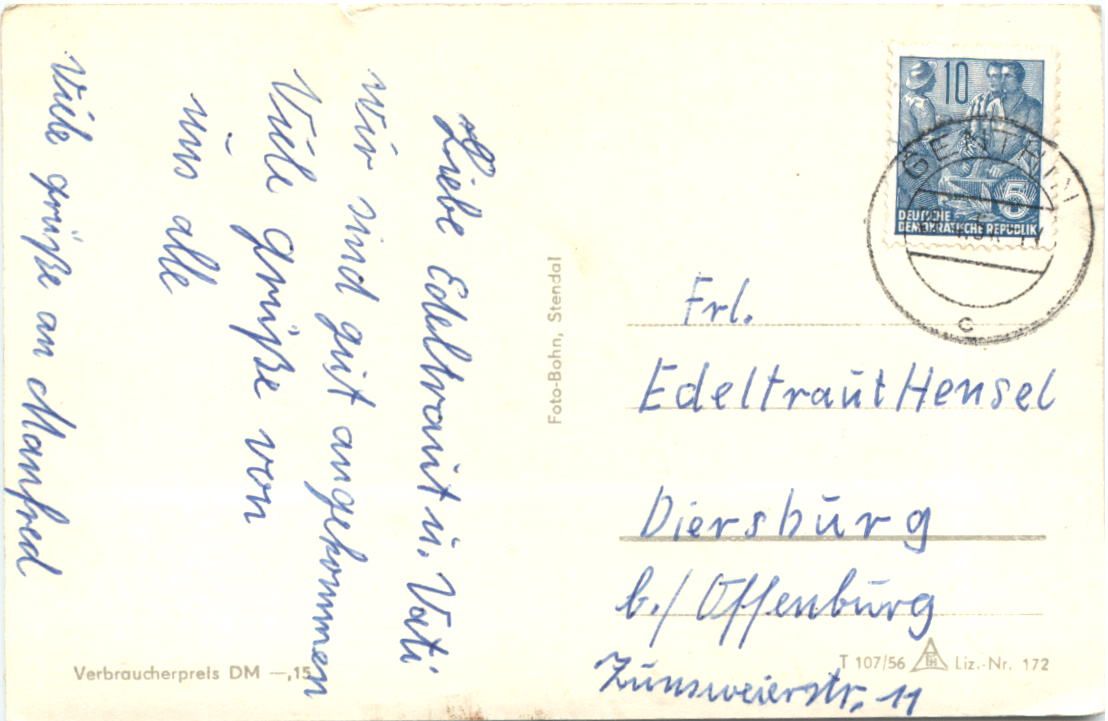 Liebe Edeltraut u. Vati.
wir sind gut angekommen
Viele grüße von
uns alle
Viele grüße an Manfred
Verbraucherpreis DM —,15
Foto-Bohn, Stendal
10
5
DEUTSCHE
DEMOKRATISCHE REPUBLIK
GENTHIN
c
Frl.
Edeltraut Hensel
Diersburg
b./Offenburg
Zunsweierstr. 11
T 107/56 Liz.-Nr. 172